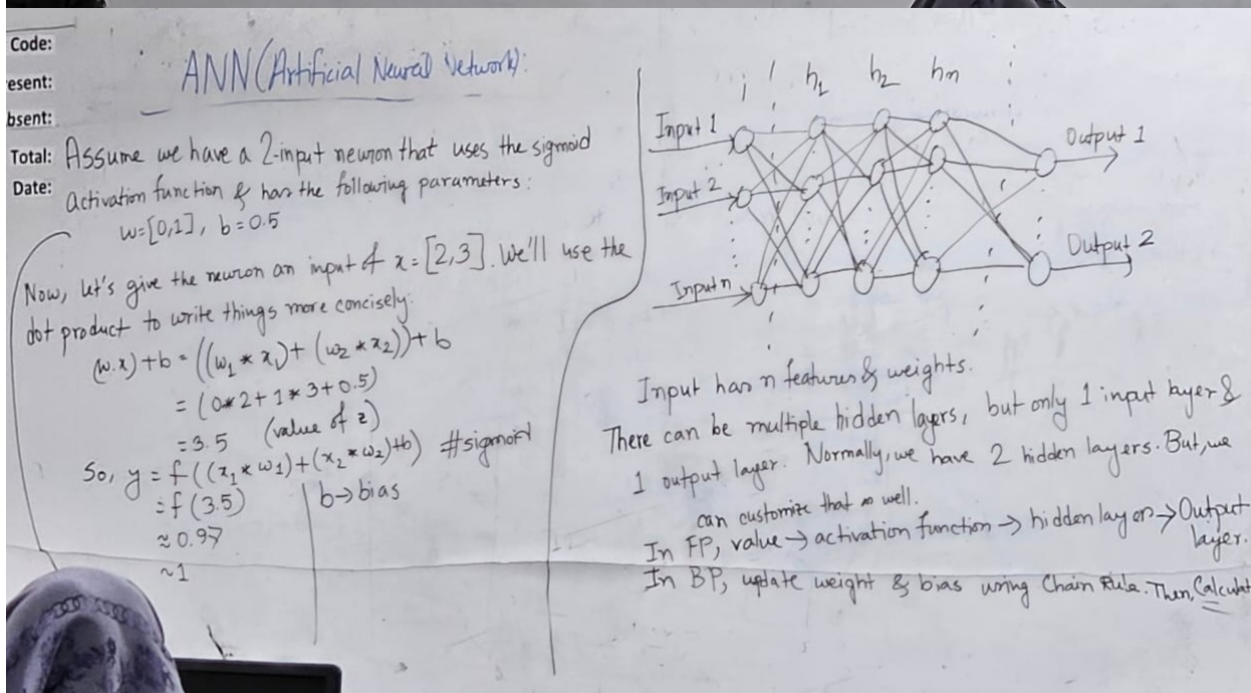 Code:
esent:
bsent:
Total:
Date:
ANN (Artificial Neural Network):
Assume we have a 2-input neuron that uses the sigmoid
activation function & has the following parameters:
w=[0,1], b=0.5
Now, let's give the neuron an input of x=[2,3]. We'll use the
dot product to write things more concisely.
(w.x)+b = ((w1 * x1)+(w2 * x2))+b
= (0*2+1*3+0.5)
=3.5 (value of z)
So, y = f((x1 * w1)+(x2 * w2)+b) #sigmoid
=f(3.5)
≈0.97
~1
b→bias
i h1 h2 hn
Input 1
Input 2
Input n
Output 1
Output 2
Input has n features & weights.
There can be multiple hidden layers, but only 1 input layer &
1 output layer. Normally, we have 2 hidden layers. But, we
can customize that as well.
In FP, value → activation function → hidden layer → Output
layer.
In BP, update weight & bias using Chain Rule. Then, Calculat